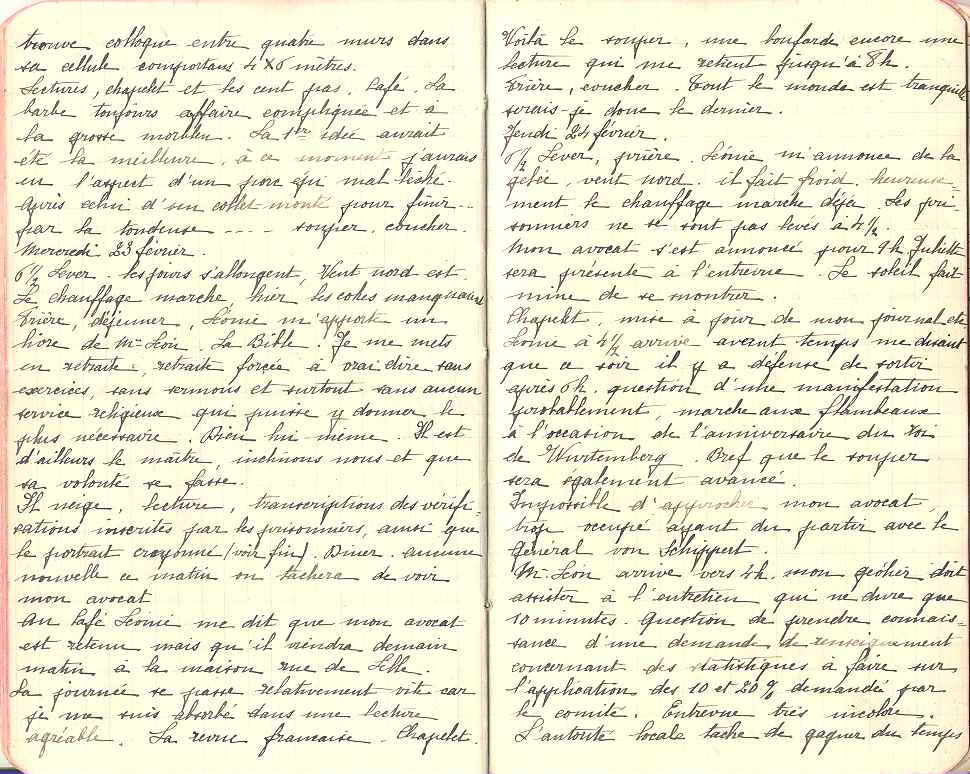 trouve colloque entre quatre murs dans
sa cellule comportans 4 x 6 mètres.
Lectures, chapelet et les cent pas. Café. La
barbe toujours affaire compliquée et à
la grosse mordieu. La 1re idée aurait
été la meilleure, à ce moment j'aurais
eu l'aspect d'un porc qui mal léché.
Après celui d'un collet-monté pour finir...
par la tondeuse ---- souper, coucher.
Mercredi 23 février.
6½ Lever. les jours s'allongent, Vent nord est.
Le chauffage marche, hier les cokes manquaient
Prière, déjeuner, Léonie m'apporte un
livre de Mr Léon. La Bible. Je me mets
en retraite, retraite forcée à vrai dire sans
exercices, sans sermons et surtout sans aucun
service religieux qui puisse y donner le
plus nécessaire. Dieu lui même. Il est
d'ailleurs le maître, inclinons nous et que
sa volonté se fasse.
Il neige, lecture, transcriptions des vérifi-
sations inscrites par les prisonniers, ainsi que
le portrait crayonné (voir fin). Diner. aucune
nouvelle ce matin on tachera de voir
mon avocat
Au Café Léonie me dit que mon avocat
est retenu mais qu'il viendra demain
matin à la maison rue de Lille
La journée se passe relativement vite car
je me suis absorbé dans une lecture
agréable. La revue francaise. Chapelet.
Voilà le souper, une boufarde encore une
lecture qui me retient jusqu'à 8h.
Prière, coucher. Tout le monde est tranquille
serais-je donc le dernier.
Jeudi 24 février.
6½ Lever, prière. Léonie m'annonce de la
gelée, vent nord. il fait froid heureuse-
ment le chauffage marche déjà. Les pri-
sonniers ne se sont pas levés à 4½.
Mon avocat s'est annoncé pour 9h Juliette
sera présente à l'entrevue. Le soleil fait
mine de se montrer.
Chapelet, mise à jour de mon journal etc
Léonie à 4½ arrive avant temps me disant
que ce soir il y a défense de sortir
après 6h. question d'une manifestation
probablement, marche aux flambeaux
à l'occasion de l'anniversaire du roi
de Wurtemberg. Bref que le souper
sera également avancé.
Impossible d'approcher mon avocat,
trop occupé ayant du partir avec le
général von Schippert.
Mr Léon arrive vers 4h. mon geôlier doit
assister à l'entretien qui ne dure que
10 minutes. Question de prendre connais-
sance d'une demande de renseignement
concernant des statistiques à faire sur
l'application des 10 et 20% demandée par
le comité. Entrevue très incolore.
L'autorité locale tache de gagner du temps